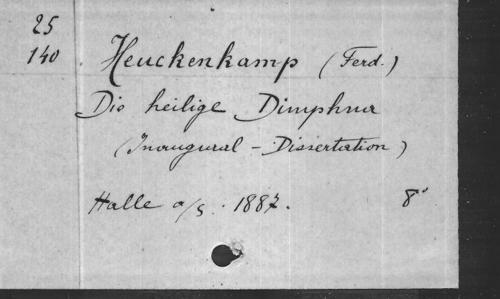 25
140 Heuckenkamp (Ferd.)
Die heilige Dimphna
(Inaugural - Dissertation)
Halle a/S. 1887. 8°